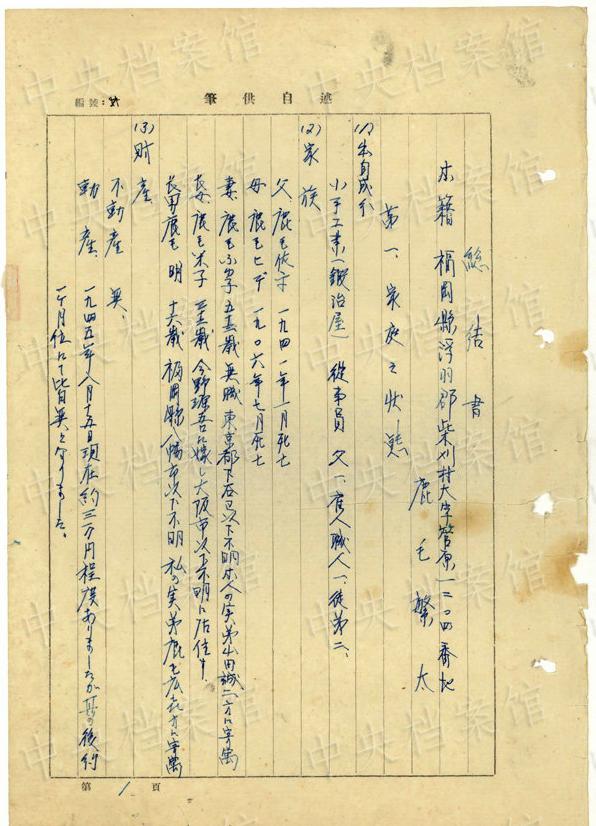 述自供筆
編號:
總結書
本籍 福岡縣浮羽郡柴刈村大字菅原一二〇四番地
鹿毛繁太
第一、家庭之狀態
(1)出身成分
小手工業(鍛冶屋) 從事員 父一、雇人職人一、徒弟二、
(2)家族
父、鹿毛 一九四一年一月死亡
母 鹿毛ヒデ 一九〇六年七月死亡
妻 鹿毛 五十五歳 無職 東京都下谷区以下不明本人の実弟山田誠二方に寄寓
長女 鹿毛米子 三十五歳 今野 吾に嫁し大阪市以下不明に居住す
長男 鹿毛明 十六歳 福岡縣八幡市以下不明 私の実弟鹿毛広 方に寄寓
(3)財産
不動産 無、
動産、一九四五年八月十五日現在約三万円程度ありましたが其の後約
一ヶ月位にて皆無となりました。
第1頁
中央档案馆